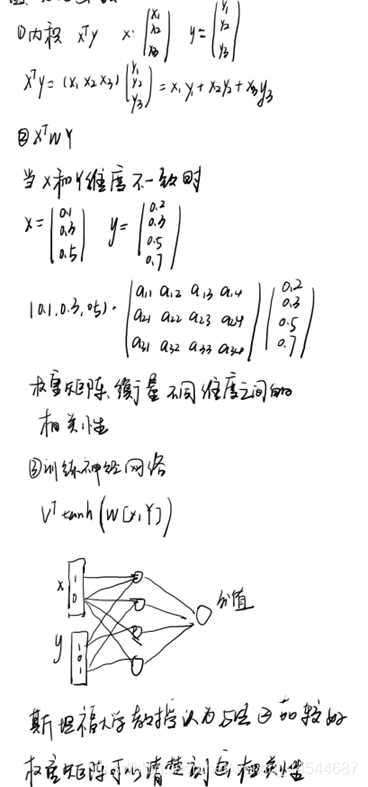 ①内积 xᵀy x: (x₁ x₂ x₃) y = (y₁ y₂ y₃)
xᵀy = (x₁ x₂ x₃) (y₁ y₂ y₃) = x₁y₁ + x₂y₂ + x₃y₃
② xᵀWY
当x和y维度不一致时
x = (0.1 0.3 0.5) y = (0.2 0.3 0.5 0.7)
(0.1, 0.3, 0.5) · (a₁₁ a₁₂ a₁₃ a₁₄
a₂₁ a₂₂ a₂₃ a₂₄
a₃₁ a₃₂ a₃₃ a₃₄) (0.2 0.3 0.5 0.7)
权重矩阵、衡量不同维度之间的
相关性
③训练神经网络
Vᵀtanh(W[x,Y])
x 1 0
分值
y 1 0 1
斯坦福大学教授认为 ② 比较好
权重矩阵可以清楚刻画相关性
544687